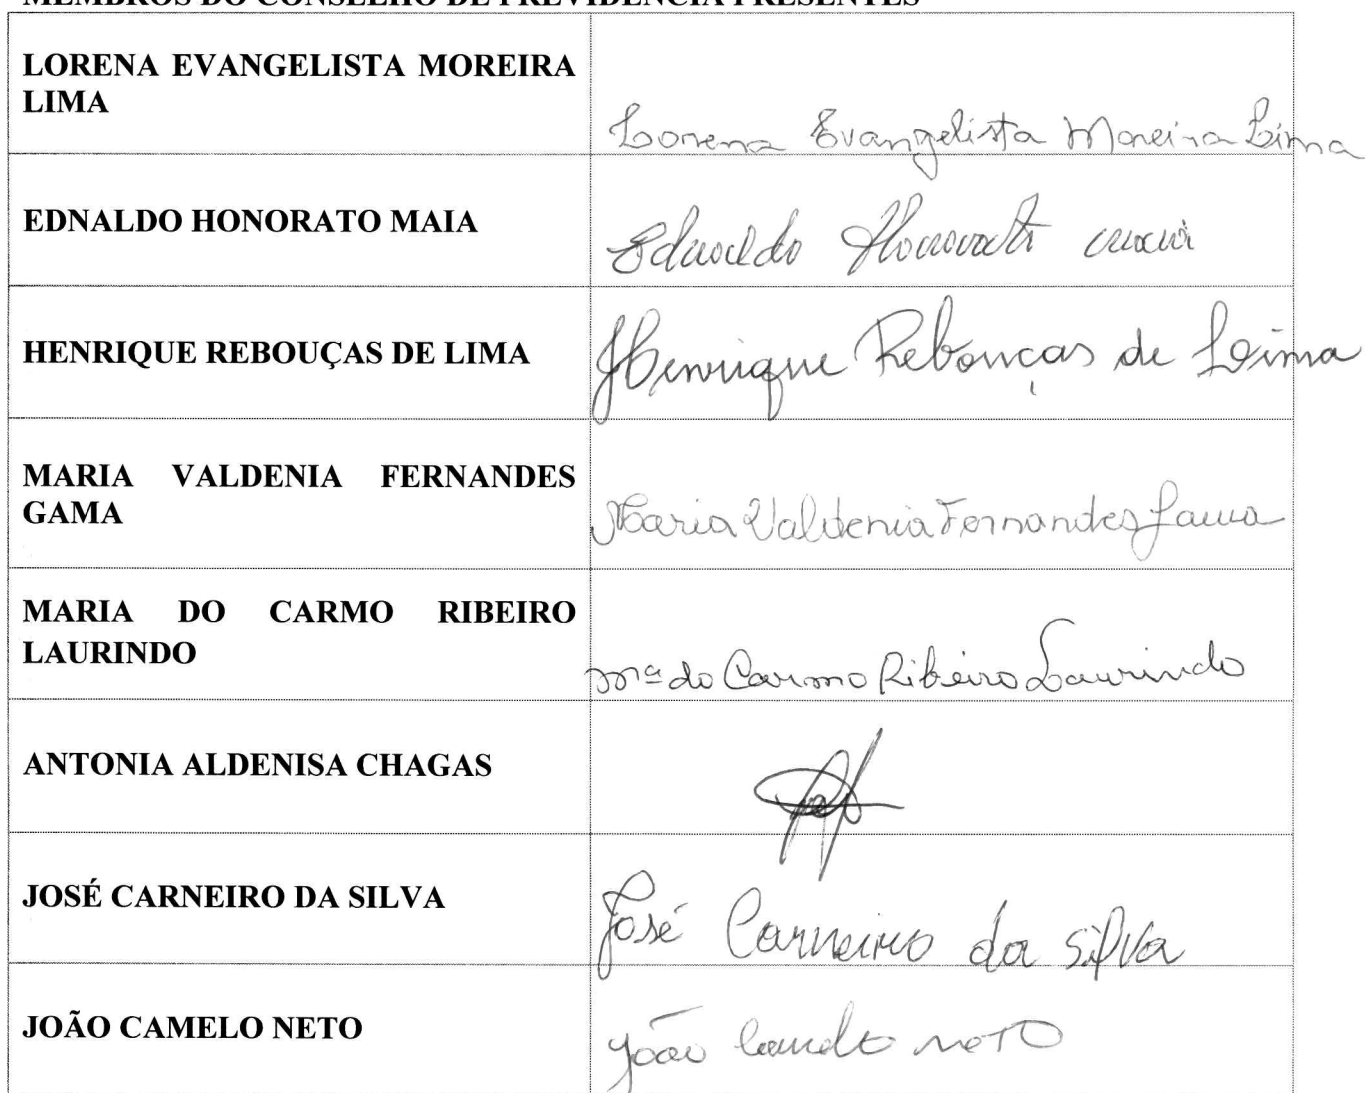 MEMBROS DO CONSELHO DE PREVIDÊNCIA PRESENTES
LORENA EVANGELISTA MOREIRA
LIMA
Lorena Evangelista Moreira Lima
EDNALDO HONORATO MAIA
Ednaldo Honorato Maia
HENRIQUE REBOUÇAS DE LIMA
Henrique Rebouças de Lima
MARIA VALDENIA FERNANDES
GAMA
Maria Valdenia Fernandes Gama
MARIA DO CARMO RIBEIRO
LAURINDO
Mª do Carmo Ribeiro Laurindo
ANTONIA ALDENISA CHAGAS
JOSÉ CARNEIRO DA SILVA
José Carneiro da Silva
JOÃO CAMELO NETO
João Camelo Neto